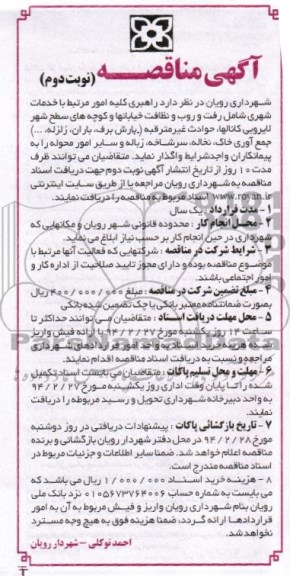 آگهی مناقصه (نوبت دوم)
شهرداری رویان در نظر دارد راهبری کلیه امور مرتبط با خدمات
شهری شامل رفت و روب و نظافت خیابانها و کوچه های سطح شهر
لایروبی کانالها، حوادث غیرمترقبه (بارش برف، باران، زلزله، ...)
جمع آوری خاک، نخاله، سرشاخه، زباله و سایر امور محوله را به
پیمانکاران واجدشرایط واگذار نماید. متقاضیان می توانند ظرف
مدت ۱۰ روز از تاریخ انتشار آگهی نوبت دوم جهت دریافت اسناد
مناقصه به شهرداری رویان مراجعه یا از طریق سایت اینترنتی
اسناد مربوط به مناقصه را دریافت نمایند.
۱- مدت قرارداد: یک سال
۲- محل انجام کار: محدوده قانونی شهر رویان و مکانهایی که
شهرداری در حین انجام کار بر حسب نیاز ابلاغ می نماید.
۳- شرایط شرکت در مناقصه: شرکتهایی که فعالیت آنها مرتبط با
موضوع مناقصه بوده و دارای مجوز تایید صلاحیت از اداره کار و
امور اجتماعی باشند.
۴- مبلغ تضمین شرکت در مناقصه: مبلغ ۴۰۰/۰۰۰/۰۰۰ ریال
بصورت ضمانتنامه معتبر بانکی یا چک تضمین شده بانکی
۵- محل مهلت دریافت اسناد: متقاضیان می توانند حداکثر تا
ساعت ۱۴ روز یکشنبه مورخ ۹۴/۲/۲۷ با ارائه فیش واریز
هزینه خرید اسناد به واحد امور قراردادهای شهرداری
مراجعه و نسبت به دریافت اسناد مناقصه اقدام نمایند.
۶- مهلت و محل تسلیم پاکات: متقاضیان می بایست اسناد تکمیل
شده را تا پایان وقت اداری روز یکشنبه مورخ ۹۴/۲/۲۷
به واحد دبیرخانه شهرداری تحویل و رسید مربوطه را دریافت
نمایند.
۷- تاریخ بازگشائی پاکات: پیشنهادات دریافتی در روز دوشنبه
مورخ ۹۴/۲/۲۸ در محل دفتر شهردار رویان بازگشائی و برنده
مناقصه اعلام خواهد شد. ضمنا سایر اطلاعات و جزئیات مربوط در
اسناد مناقصه مندرج است.
۸- هزینه خرید اسناد ۱/۰۰۰/۰۰۰ ریال می باشد که
می بایست به شماره حساب ۰۱۰۵۶۷۳۷۶۴۰۰۶ نزد بانک ملی
رویان بنام شهرداری رویان واریز و فیش مربوط به آن به امور
قراردادها ارائه گردد، ضمنا هزینه فوق به هیچ وجه مسترد
نخواهد شد.
احمد توکلی - شهردار رویان